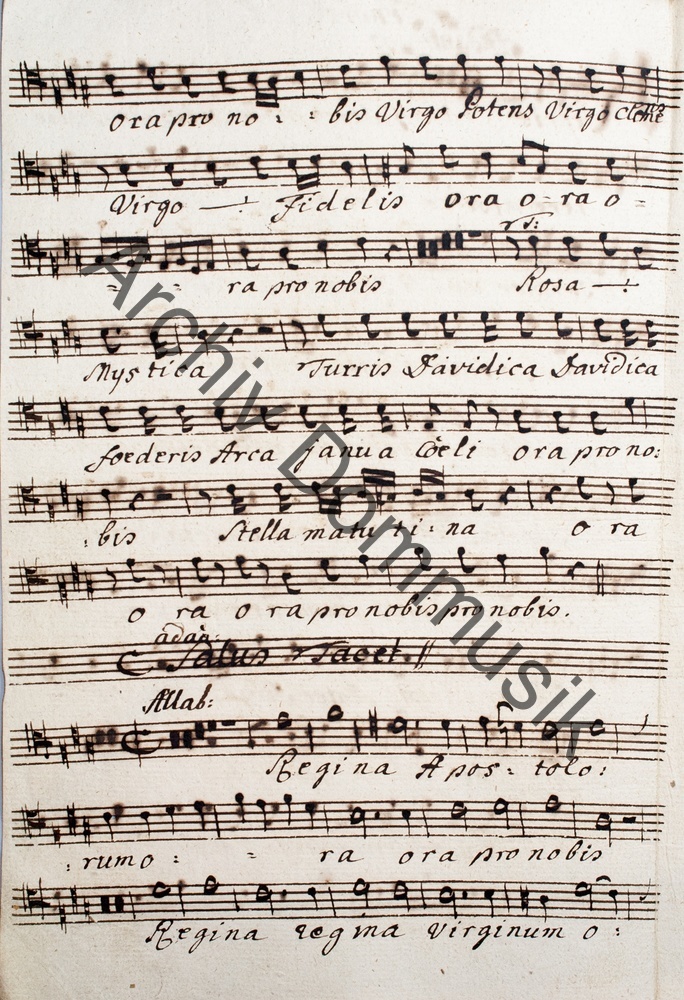 ora pro no : : bis Virgo Potens Virgo Clemens
Virgo —:— Fidelis ora o-ra o=
T:
= = ra pro nobis Rosa —:—
Mystica Turris Davidica Davidica
foederis Arca janua Coeli ora pro no:
: bis Stella matuti: na o ra
o ra o ra pro nobis pro nobis.
adag:
C Salus Tacet
Allab:
Regina Apos = tolo:
: rumo : = ra ora pro nobis
Regina regina Virginum o :
Archiv Dommusik